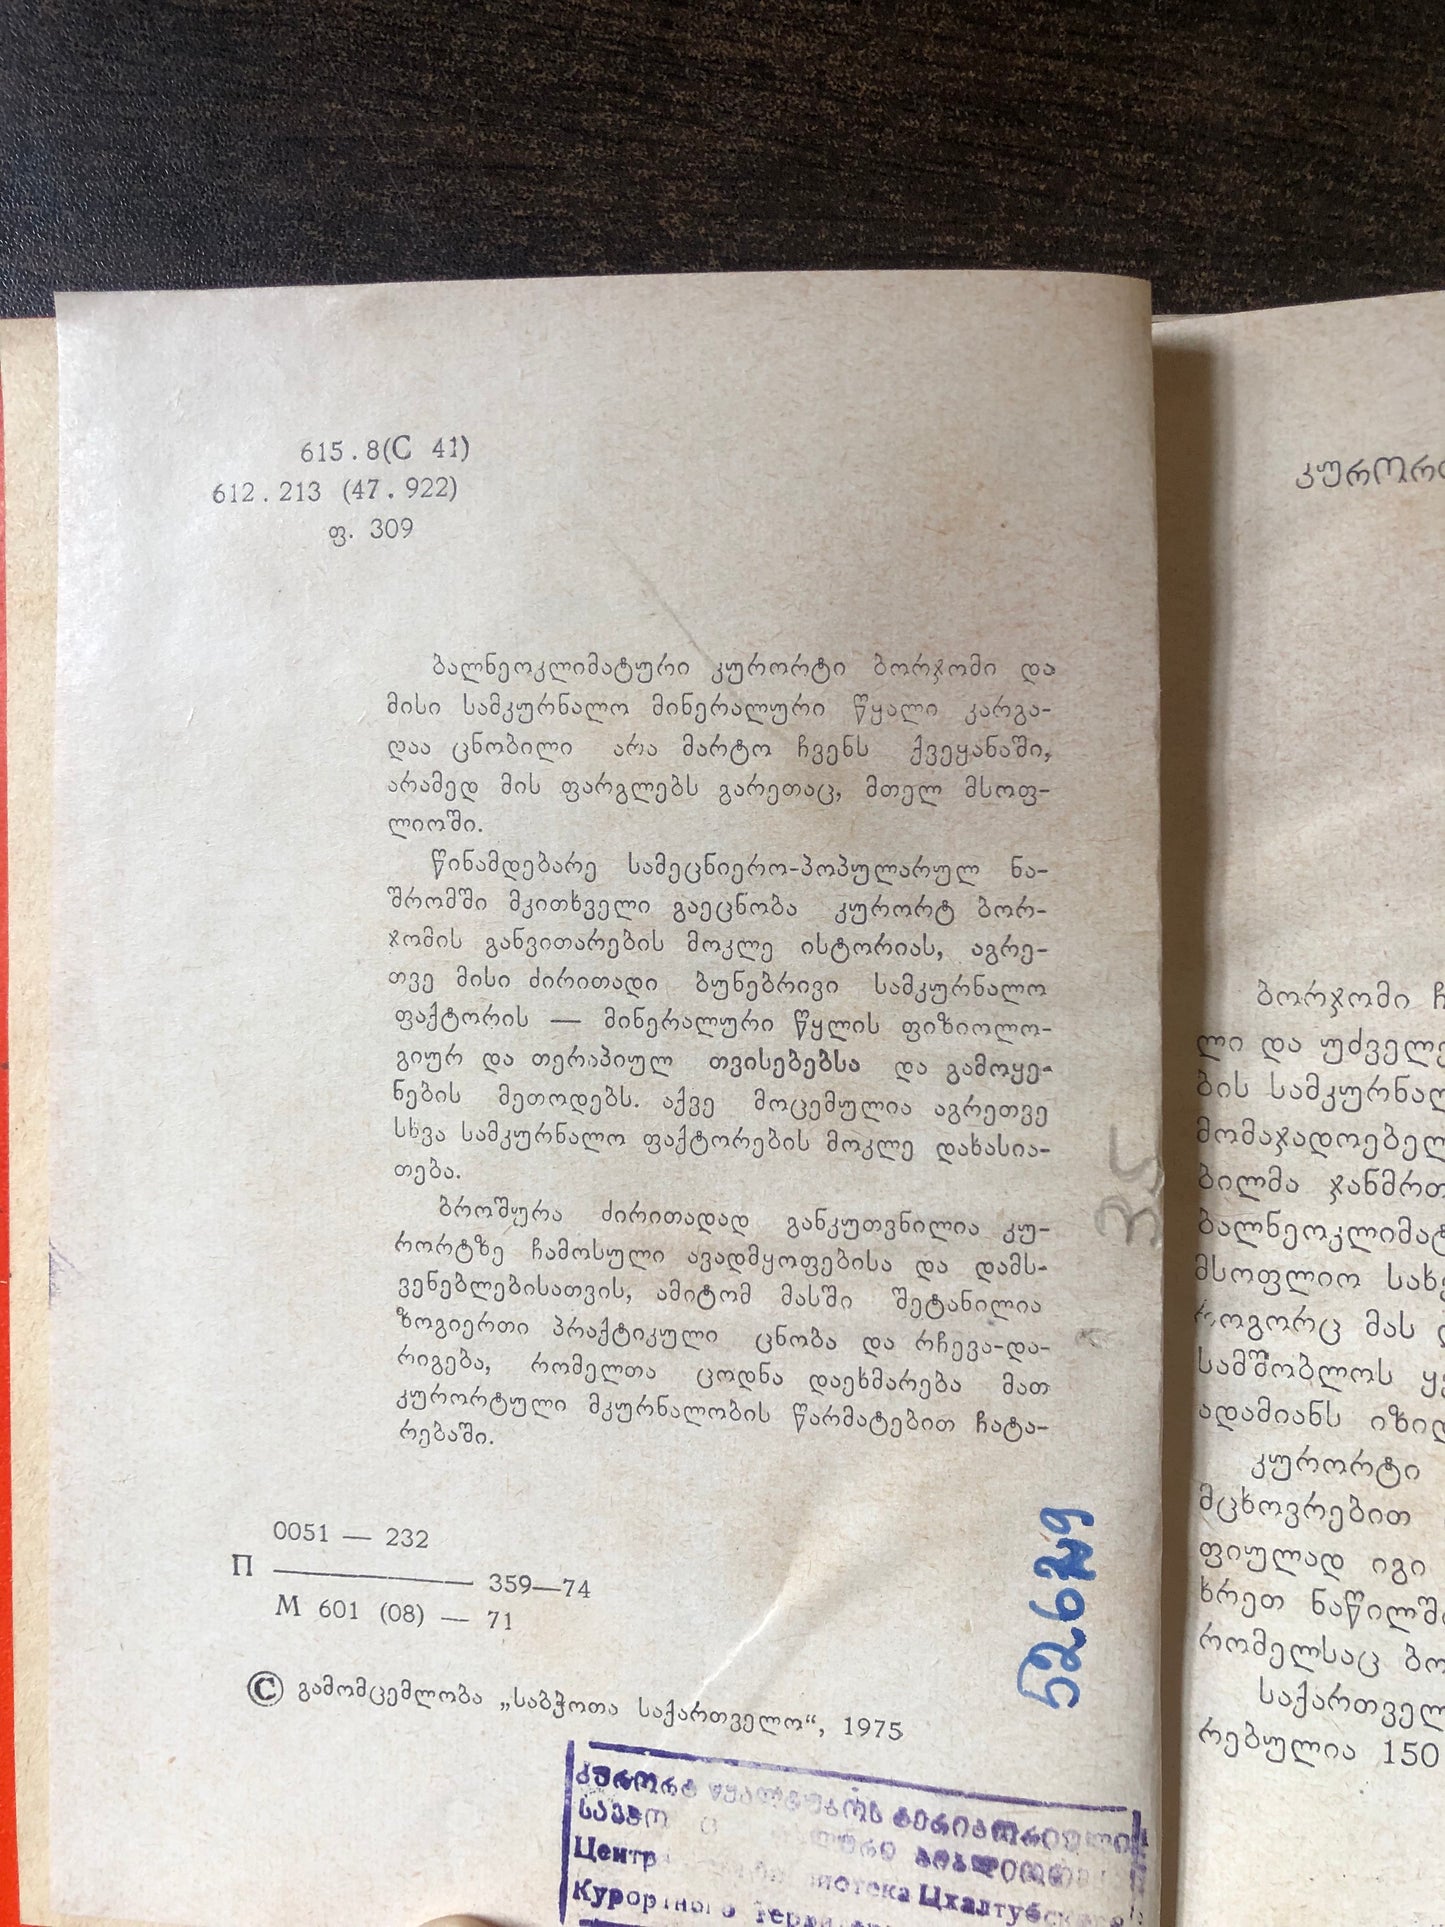 615.8(С 41)
612.213 (47.922)
ფ. 309
ბალნეოკლიმატური კურორტი ბორჯომი და
მისი სამკურნალო მინერალური წყალი კარგა-
დაა ცნობილი არა მარტო ჩვენს ქვეყანაში,
არამედ მის ფარგლებს გარეთაც, მთელ მსოფ-
ლიოში.
წინამდებარე სამეცნიერო-პოპულარულ ნა-
შრომში მკითხველი გაეცნობა კურორტ ბორ-
ჯომის განვითარების მოკლე ისტორიას, აგრე-
თვე მისი ძირითადი ბუნებრივი სამკურნალო
ფაქტორის — მინერალური წყლის ფიზიოლო-
გიურ და თერაპიულ თვისებებსა და გამოყე-
ნების მეთოდებს. აქვე მოცემულია აგრეთვე
სხვა სამკურნალო ფაქტორების მოკლე დახასია-
თება.
ბროშურა ძირითადად განკუთვნილია კუ-
რორტზე ჩამოსული ავადმყოფებისა და დამს-
ვენებლებისათვის, ამიტომ მასში შეტანილია
ზოგიერთი პრაქტიკული ცნობა და რჩევა-და-
რიგება, რომელთა ცოდნა დაეხმარება მათ
კურორტული მკურნალობის წარმატებით ჩატა-
რებაში.
0051 — 232
П 359—74
М 601 (08) — 71
© გამომცემლობა „საბჭოთა საქართველო“, 1975
კურორტ წყალტუბოს ტერიტორიული
Центр
Цхалтубского
Курортного
35
კურორ
ბორჯომი ჩ
ლი და უძველე
ბის სამკურნალ
მომაჯადოებელ
ბილმა ჯანმრთ
ბალნეოკლიმატ
მსოფლიო სახე
როგორც მას
სამშობლოს ყვ
ადამიანს იზიდ
კურორტი
მცხოვრებით
ფიულად იგი
ხრეთ ნაწილში
რომელსაც ბო
საქართველ
რებულია 150